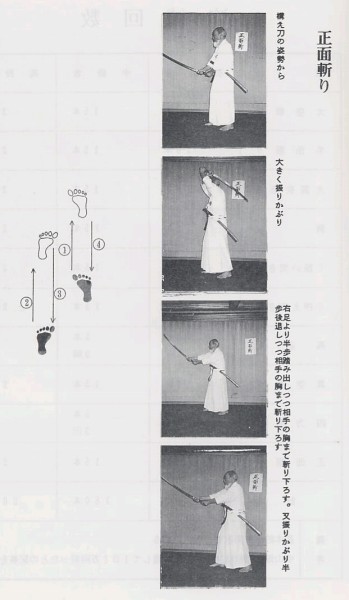 正面斬り
構え刀の姿勢から
大きく振りかぶり
右足より半歩踏み出しつつ相手の胸まで斬り下ろす。又振りかぶり半
歩後退しつつ相手の胸まで斬り下ろす
①
④
②
③